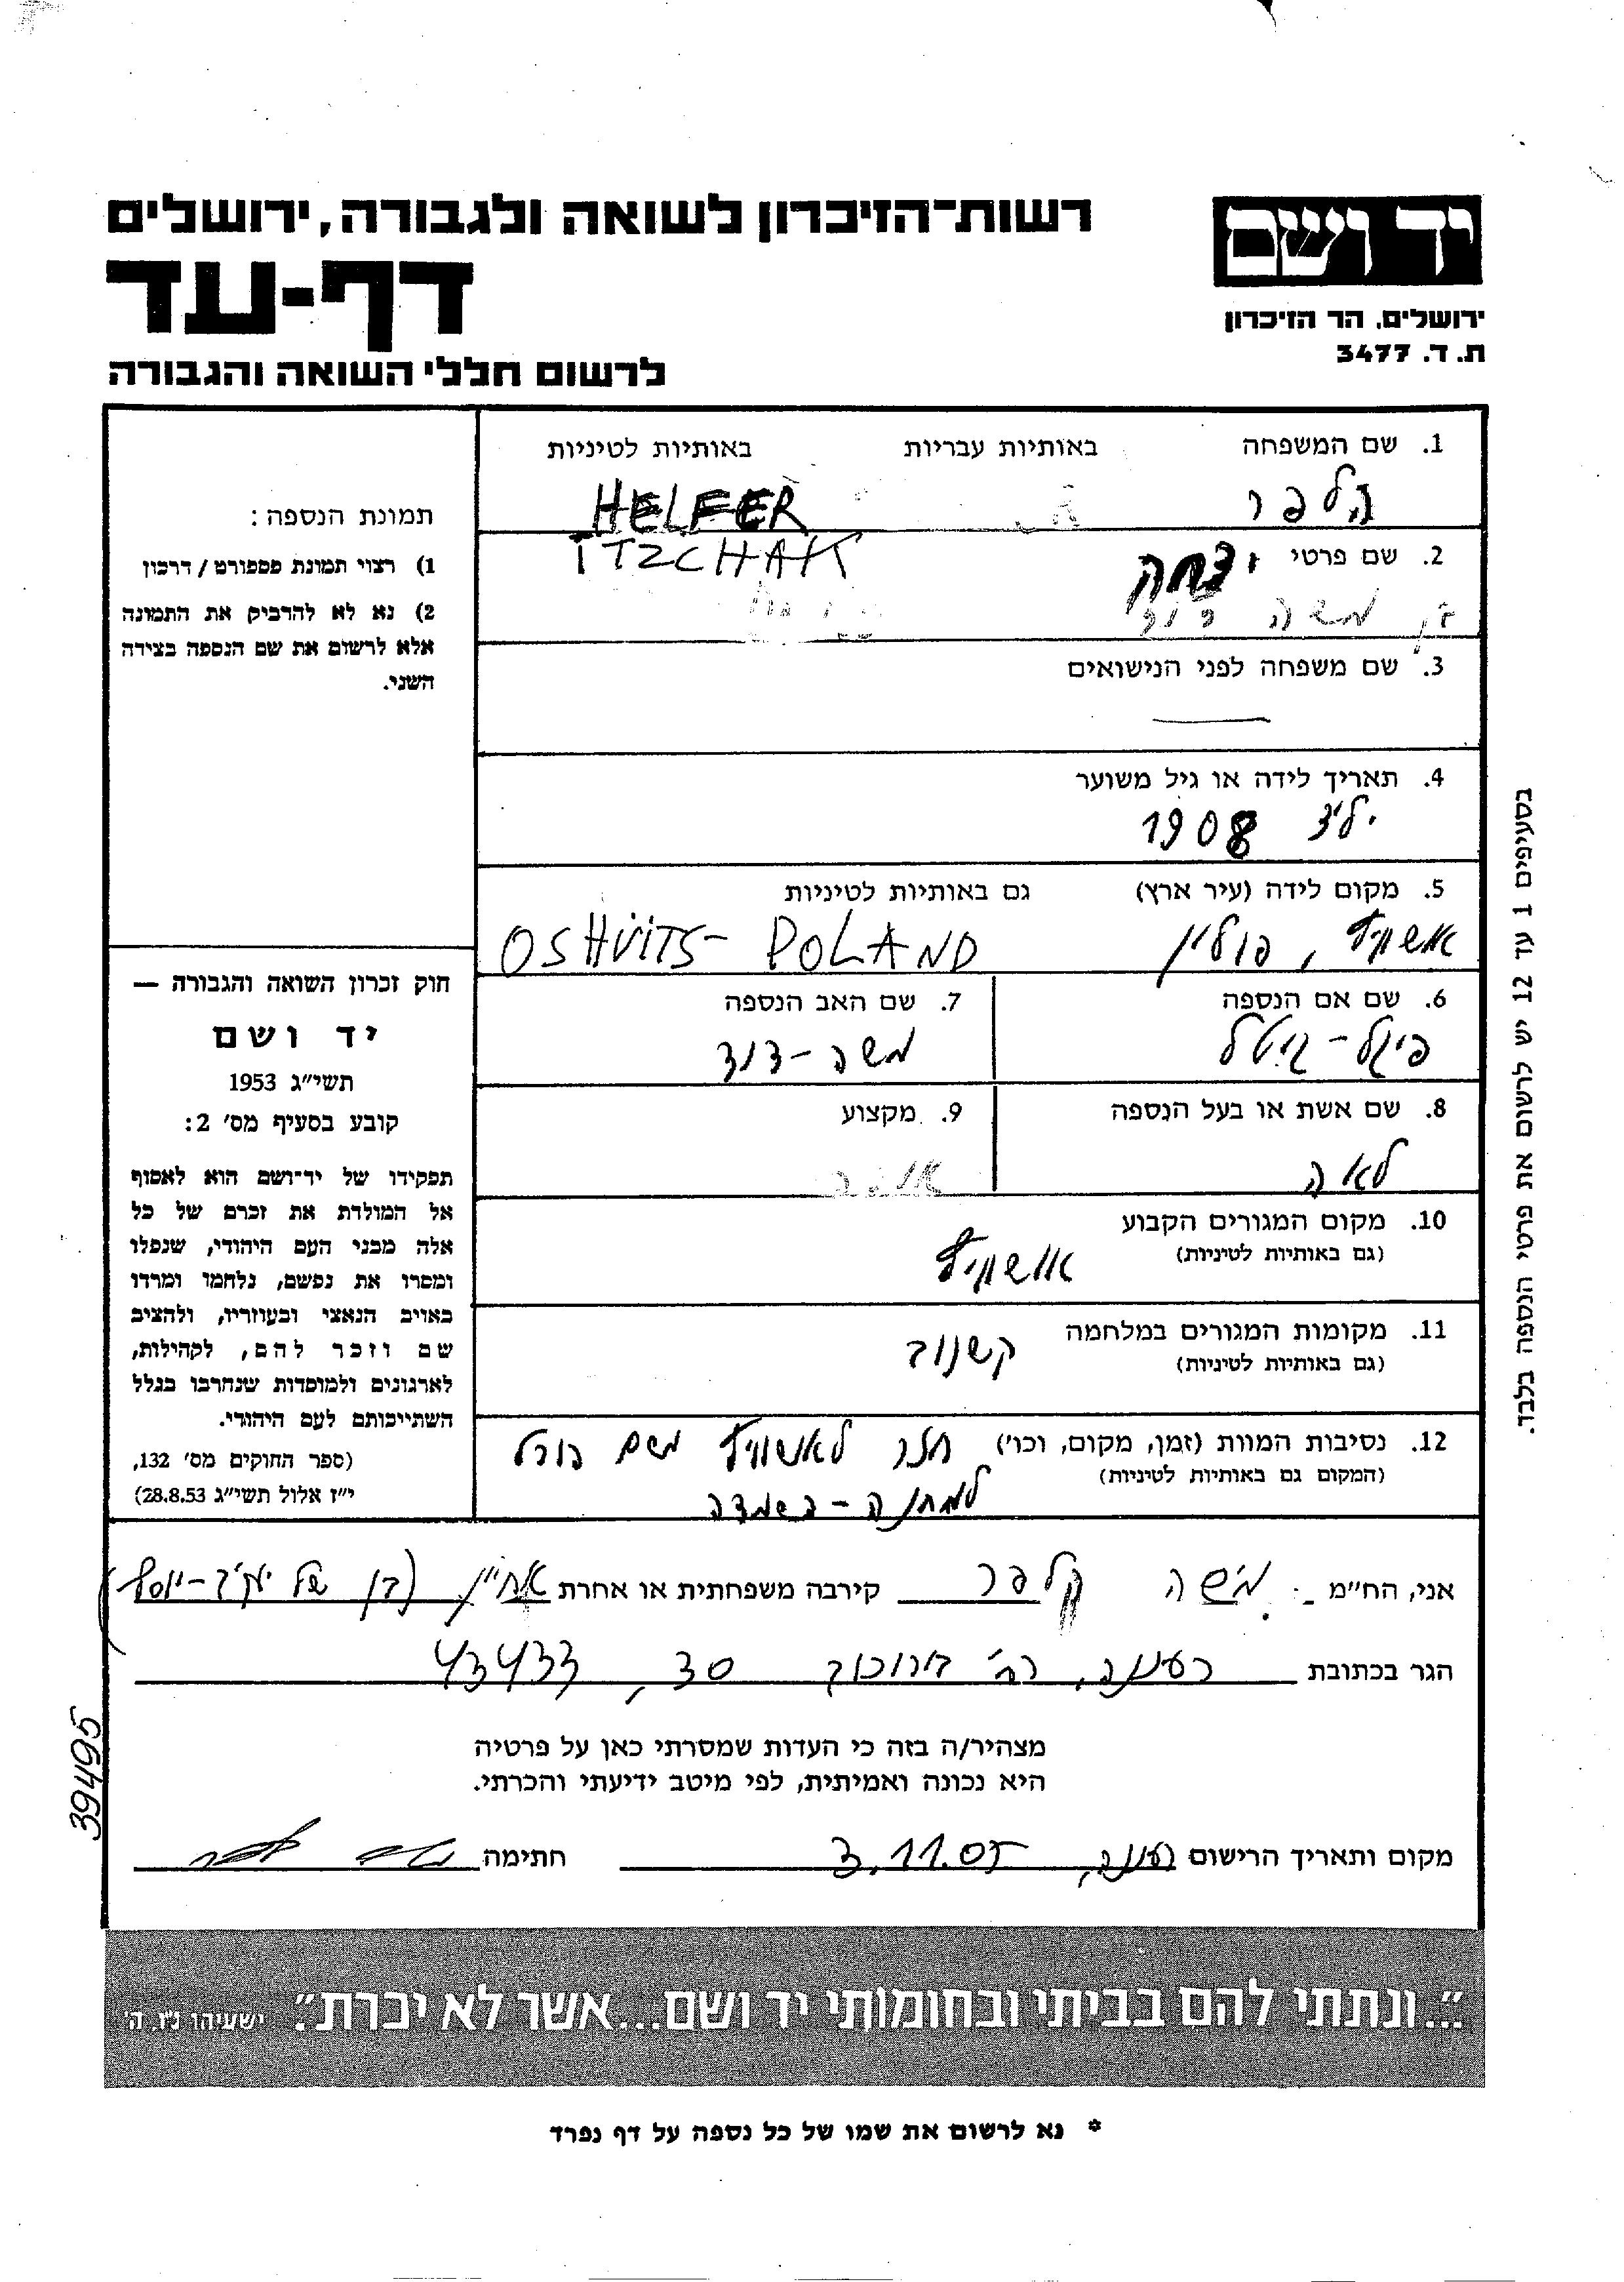 רשות־הזיכרון לשואה ולגבורה, ירושלים
יד ושם
דף-עד
ירושלים, הר הזיכרון
ת. ד. 3477
לרשום חללי השואה והגבורה
1. שם המשפחה באותיות עבריות באותיות לטיניות
הלפר HELFER
2. שם פרטי יצחק ITZCHAK
בן משה דוד
3. שם משפחה לפני הנישואים
4. תאריך לידה או גיל משוער
1908
5. מקום לידה (עיר ארץ) גם באותיות לטיניות
אושויץ, פולין OSHVITS- POLAND
6. שם אם הנספה
פיגל-גיטל
7. שם האב הנספה
משה-דוד
8. שם אשת או בעל הנספה
לאה
9. מקצוע
10. מקום המגורים הקבוע
(גם באותיות לטיניות)
אושויץ
11. מקומות המגורים במלחמה
(גם באותיות לטיניות)
קשנוב
12. נסיבות המוות (זמן, מקום, וכו') לאושויץ משם
(המקום גם באותיות לטיניות)
למחנה-השמדה
תמונת הנספה:
1) רצוי תמונת פספורט / דרכון
2) נא לא להדביק את התמונה
אלא לרשום את שם הנספה בצידה
השני.
חוק זכרון השואה והגבורה —
יד ושם
תשי"ג 1953
קובע בסעיף מס' 2:
תפקידו של יד־ושם הוא לאסוף
אל המולדת את זכרם של כל
אלה מבני העם היהודי, שנפלו
ומסרו את נפשם, נלחמו ומרדו
באויב הנאצי ובעוזריו, ולהציב
שם וזכר להם, לקהילות,
לארגונים ולמוסדות שנחרבו בגלל
השתייכותם לעם היהודי.
(ספר החוקים מס' 132,
י"ז אלול תשי"ג 28.8.53)
בסעיפים 1 עד 12 יש לרשום את פרטי הנספה בלבד.
אני, הח"מ משה הלפר קירבה משפחתית או אחרת אחיין (בן של יוסף)
הגר בכתובת רעננה, רח' בורוכוב 30, 43433
מצהיר/ה בזה כי העדות שמסרתי כאן על פרטיה
היא נכונה ואמיתית, לפי מיטב ידיעתי והכרתי.
מקום ותאריך הרישום רעננה, 3.11.05 חתימה
39495
"...ונתתי להם בביתי ובחומותי יד ושם...אשר לא יכרת". ישעיהו נ״ו, ה'
* נא לרשום את שמו של כל נספה על דף נפרד